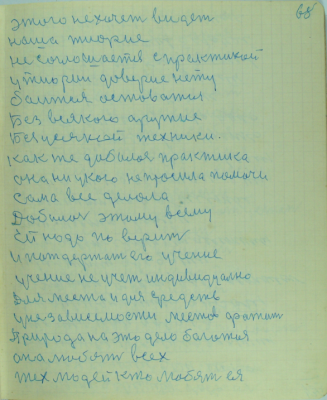 68
этого не хочет видет
наша тиорие
не соглошается спрактикой
у тиории доверие нету
баится остоватся
Без всякого оружие
Без усякой техники.
как же добился практика
она ни укого непросила помочи
сама все делола
Добилас этому всему
Ей надо по верит
и поддержат его учение
учение не учет индивидуално
Для места и для средств
унезависемости места фотит
Природа на это дело богатоя
она любит всех
тех людей кто любятся